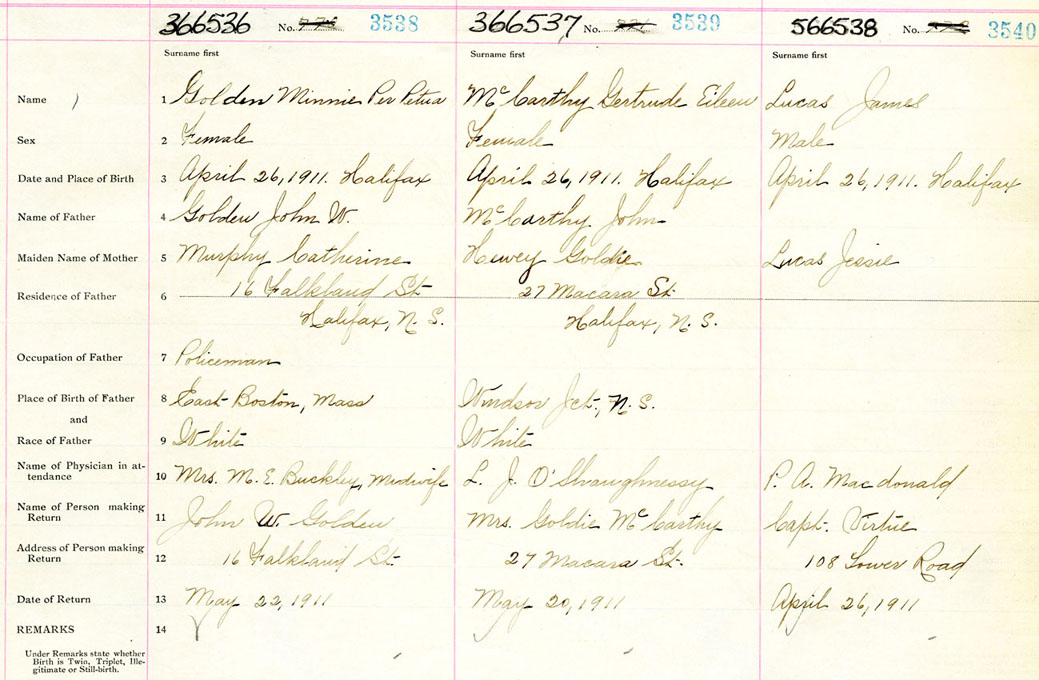 366536 No. 3538 366537 No. 3539 566538 No. 3540
Surname first Surname first Surname first
Name 1 Golden Minnie Perpetua McCarthy Gertrude Eileen Lucas James
Sex 2 Female Female Male
Date and Place of Birth 3 April 26, 1911. Halifax April 26, 1911. Halifax April 26, 1911. Halifax
Name of Father 4 Golden John W. McCarthy John
Maiden Name of Mother 5 Murphy Catherine Huvey Goldie Lucas Jessie
Residence of Father 6 16 Falkland St. 27 Macara St.
Halifax, N.S. Halifax, N.S.
Occupation of Father 7 Policeman
Place of Birth of Father 8 East Boston, Mass Windsor Jct., N.S.
and
Race of Father 9 White White
Name of Physician in at-
tendance 10 Mrs. M. E. Buckley, Midwife L. J. O'Shaughnessy P. A. Macdonald
Name of Person making
Return 11 John W. Golden Mrs. Goldie McCarthy Capt. Virtue
Address of Person making
Return 12 16 Falkland St. 27 Macara St. 108 Lower Road
Date of Return 13 May 22, 1911 May 20, 1911 April 26, 1911
REMARKS 14
Under Remarks state whether
Birth is Twin, Triplet, Ille-
gitimate or Still-birth.